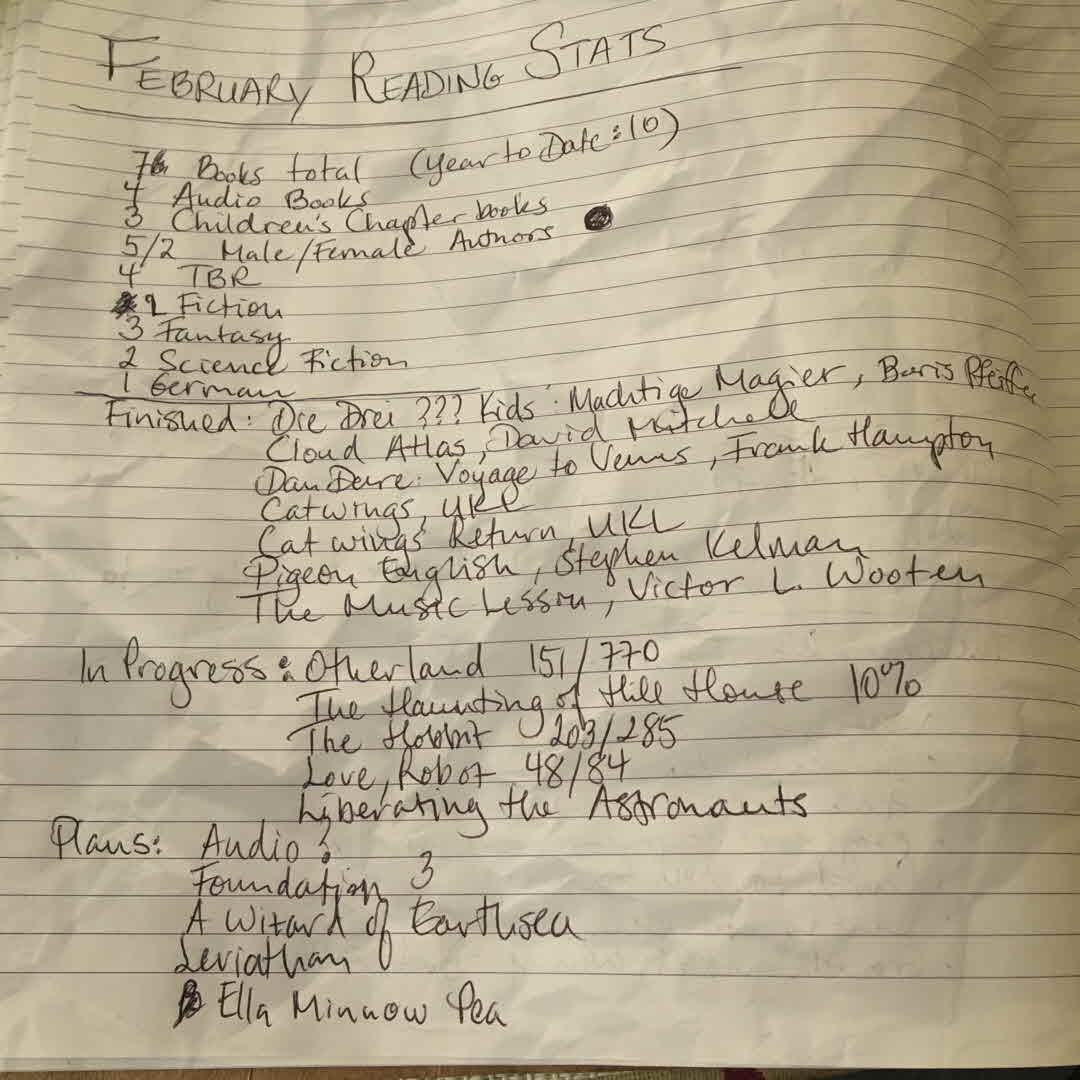 FEBRUARY READING STATS
7 Books total (Year to Date: 10)
4 Audio Books
3 Children's Chapter books
5/2 Male/Female Authors
4 TBR
2 Fiction
3 Fantasy
2 Science Fiction
1 German
Finished: Die Drei ??? Kids: Machtige Magier, Boris Pfeiffer
Cloud Atlas, David Mitchell
Dan Dare: Voyage to Venus, Frank Hampton
Catwings, UKL
Catwings Return, UKL
Pigeon English, Stephen Kelman
The Music Lesson, Victor L. Wooten
In Progress: Otherland 151/770
The Haunting of Hill House 10%
The Hobbit 203/285
Love, Robot 48/84
Liberating the Astronauts
Plans: Audio?
Foundation 3
A Wizard of Earthsea
Leviathan
Ella Minnow Pea